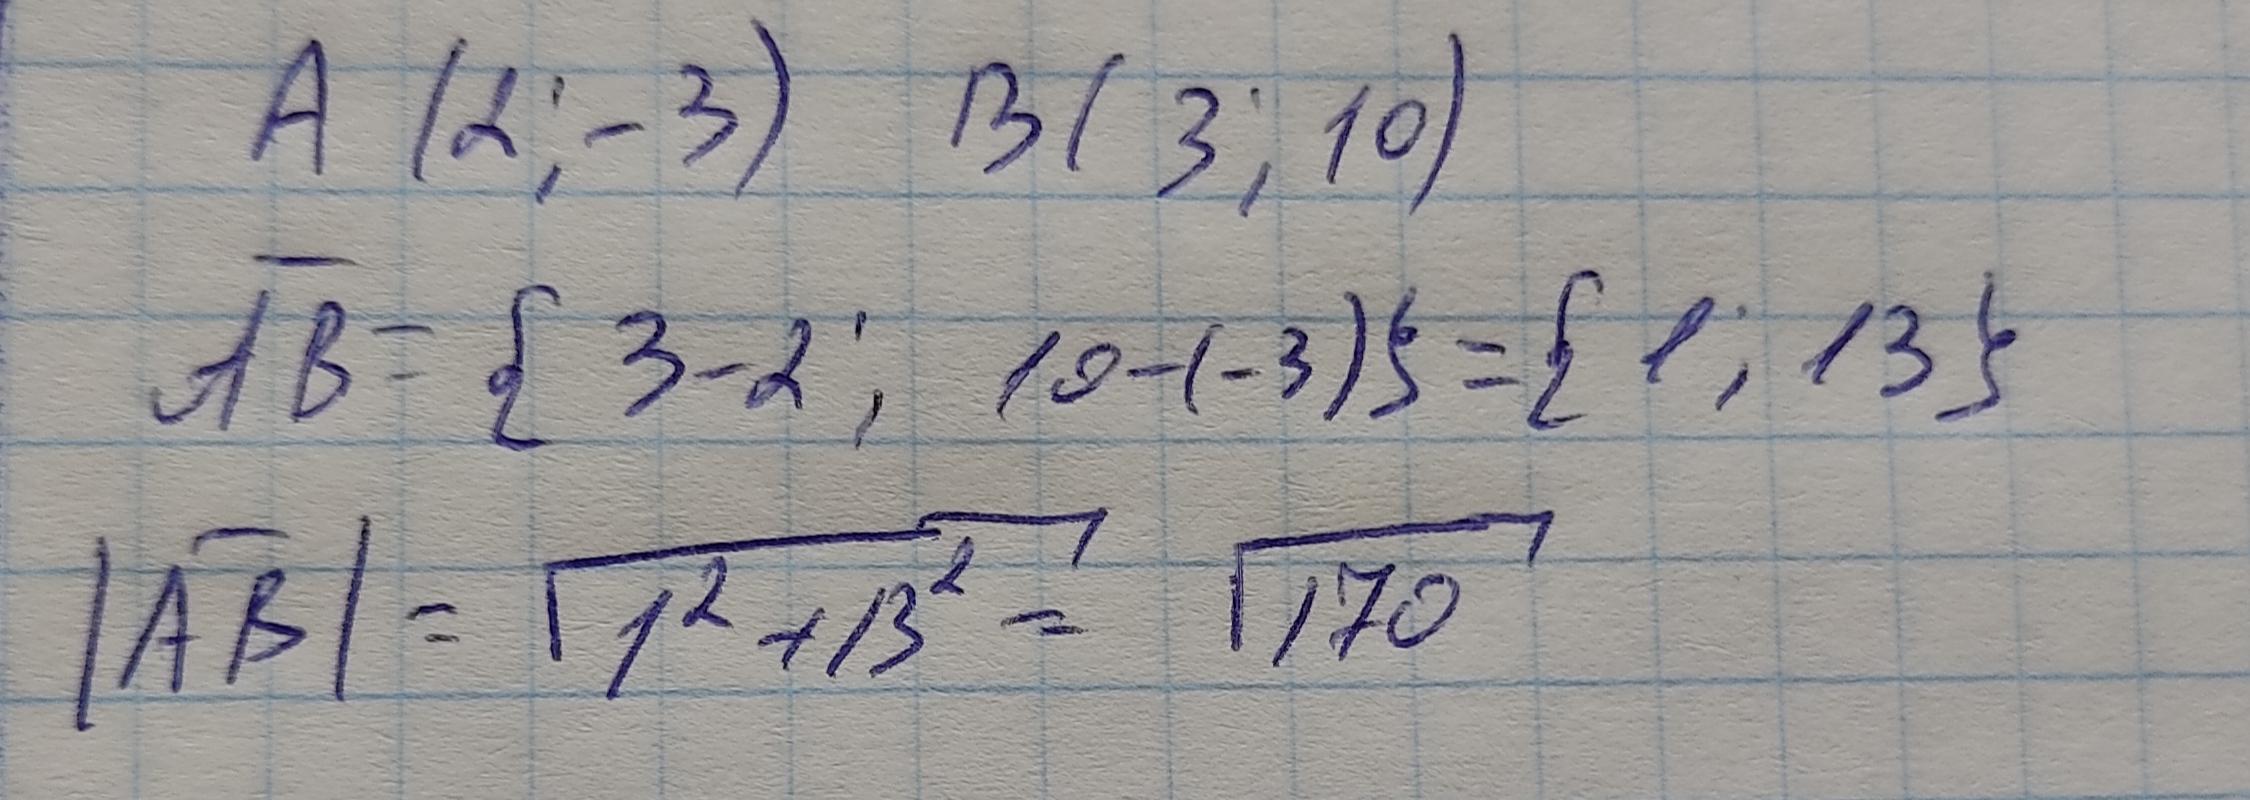 A (2; -3) B (3; 10)
A̅B̅ = { 3-2; 10-(-3)} = { 1; 13 }
|A̅B̅| = √(1² + 13²) = √170